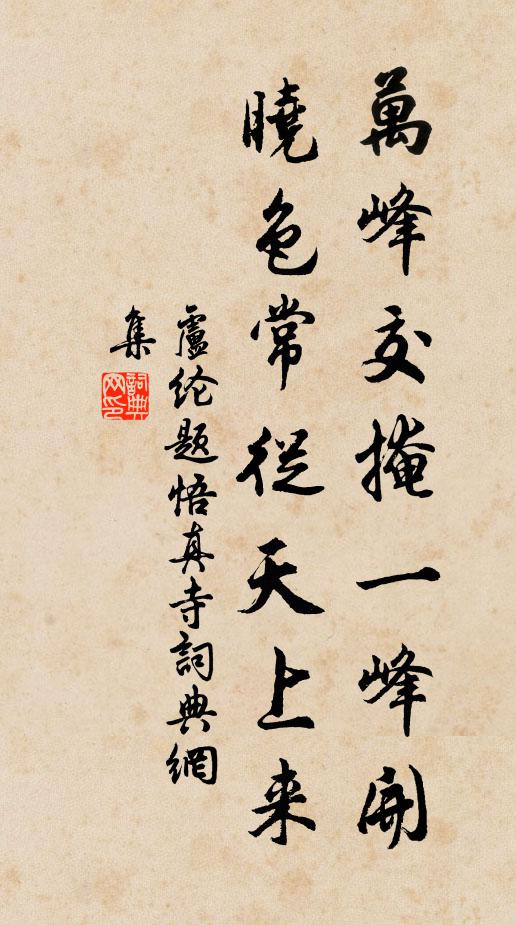 萬峰交掩一峰開
曉色常從天上来
盧纶题悟真寺詞典網
集
詞典
网印